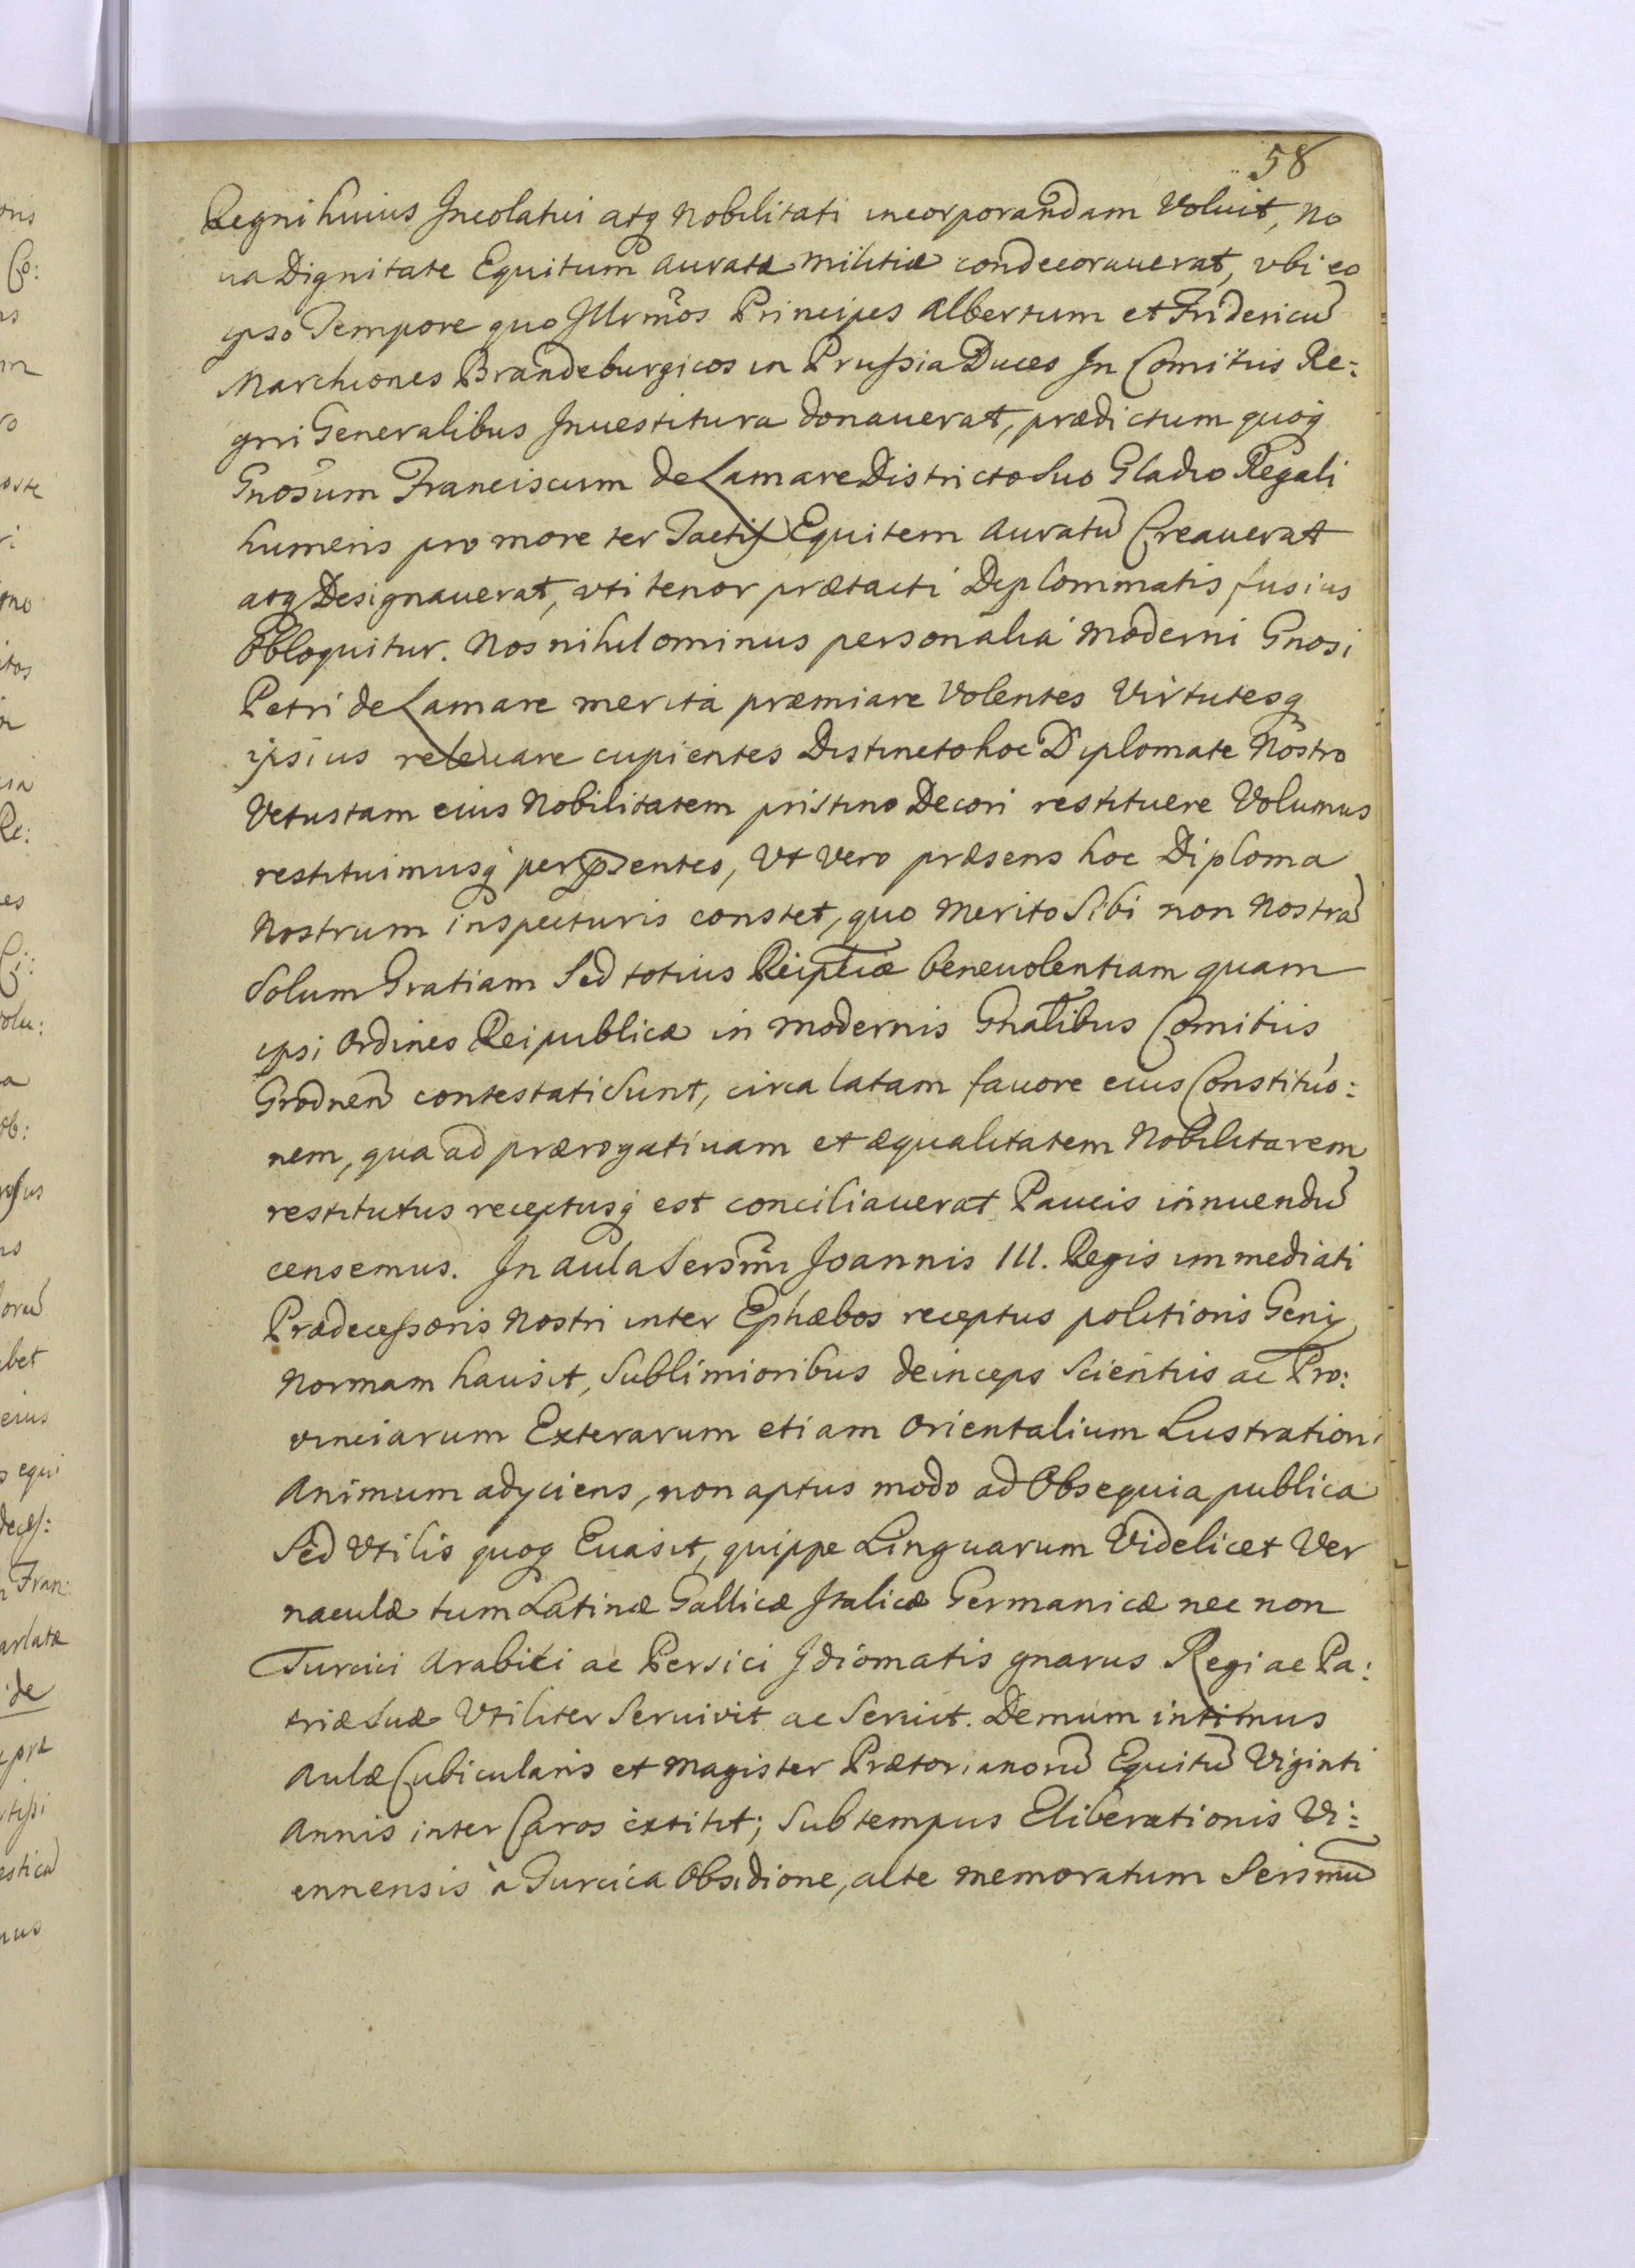 58
Regni huius Incolatui atq Nobilitati incorporandam Voluit, No
ua Dignitate Equitum Auratæ Militiæ condecorauerat, vbi eo
ipso Tempore quo Illrmos Principes Albertum et Fridericũ
Marchiones Brandeburgicos in Prussia Duces In Comitiis Re:
gni Generalibus Inuestitura donauerat, prædictum quoq
Gnosum Franciscum de Lamare Districto Suo Gladio Regali
humeris pro more ter Tactis Equitem Auratũ Creauerat
atq Designauerat, vti tenor prætacti Diplommatis fusius
Obloquitur. Nos nihilominus personalia moderni Gnosi
Petri de Lamare merita præmiare Volentes Virtutesq
ipsius releuare cupientes Distincto hoc Diplomate Nostro
Vetustam eius Nobilitatem pristino Decori restituere Volumus
restituimusq per pntes, Vt vero præsens hoc Diploma
Nostrum inspecturis constet, quo merito Sibi non Nostrã
Solum Gratiam Sed totius Reiplicæ beneuolentiam quam
ipsi Ordines Reipublicæ in modernis Gnalibus Comitiis
Grodnen contestati Sunt, circa latam fauore eius Constituo:
nem, qua ad prærogatiuam et æqualitatem Nobilitarem
restitutus receptusq est conciliauerat Paucis innuendũ
censemus. In Aula Sersmi Joannis III. Regis immediati
Prædecessoris Nostri inter Ephæbos receptus politioris Genij
Normam hausit, Sublimioribus deinceps Scientiis ac Pro:
vinciarum Exterarum etiam Orientalium Lustrationi
Animum adyciens, non aptus modo ad Obsequia publica
Sed Vtilis quoq Euasit, quippe Linguarum Videlicet Ver
naculæ tum Latinæ Gallicæ Italicæ Germanicæ nec non
Turcici Arabici ac Persici Idiomatis gnarus Regi ac Pa:
triæ Suæ Vtiliter Seruivit ac Seruit. Demum intimus
Aulæ Cubicularis et Magister Prætorianorũ Equitũ Viginti
Annis inter Caros extitit; Sub tempus Eliberationis Vi:
ennensis à Turcica Obsidione, alte memoratum Sersmũ